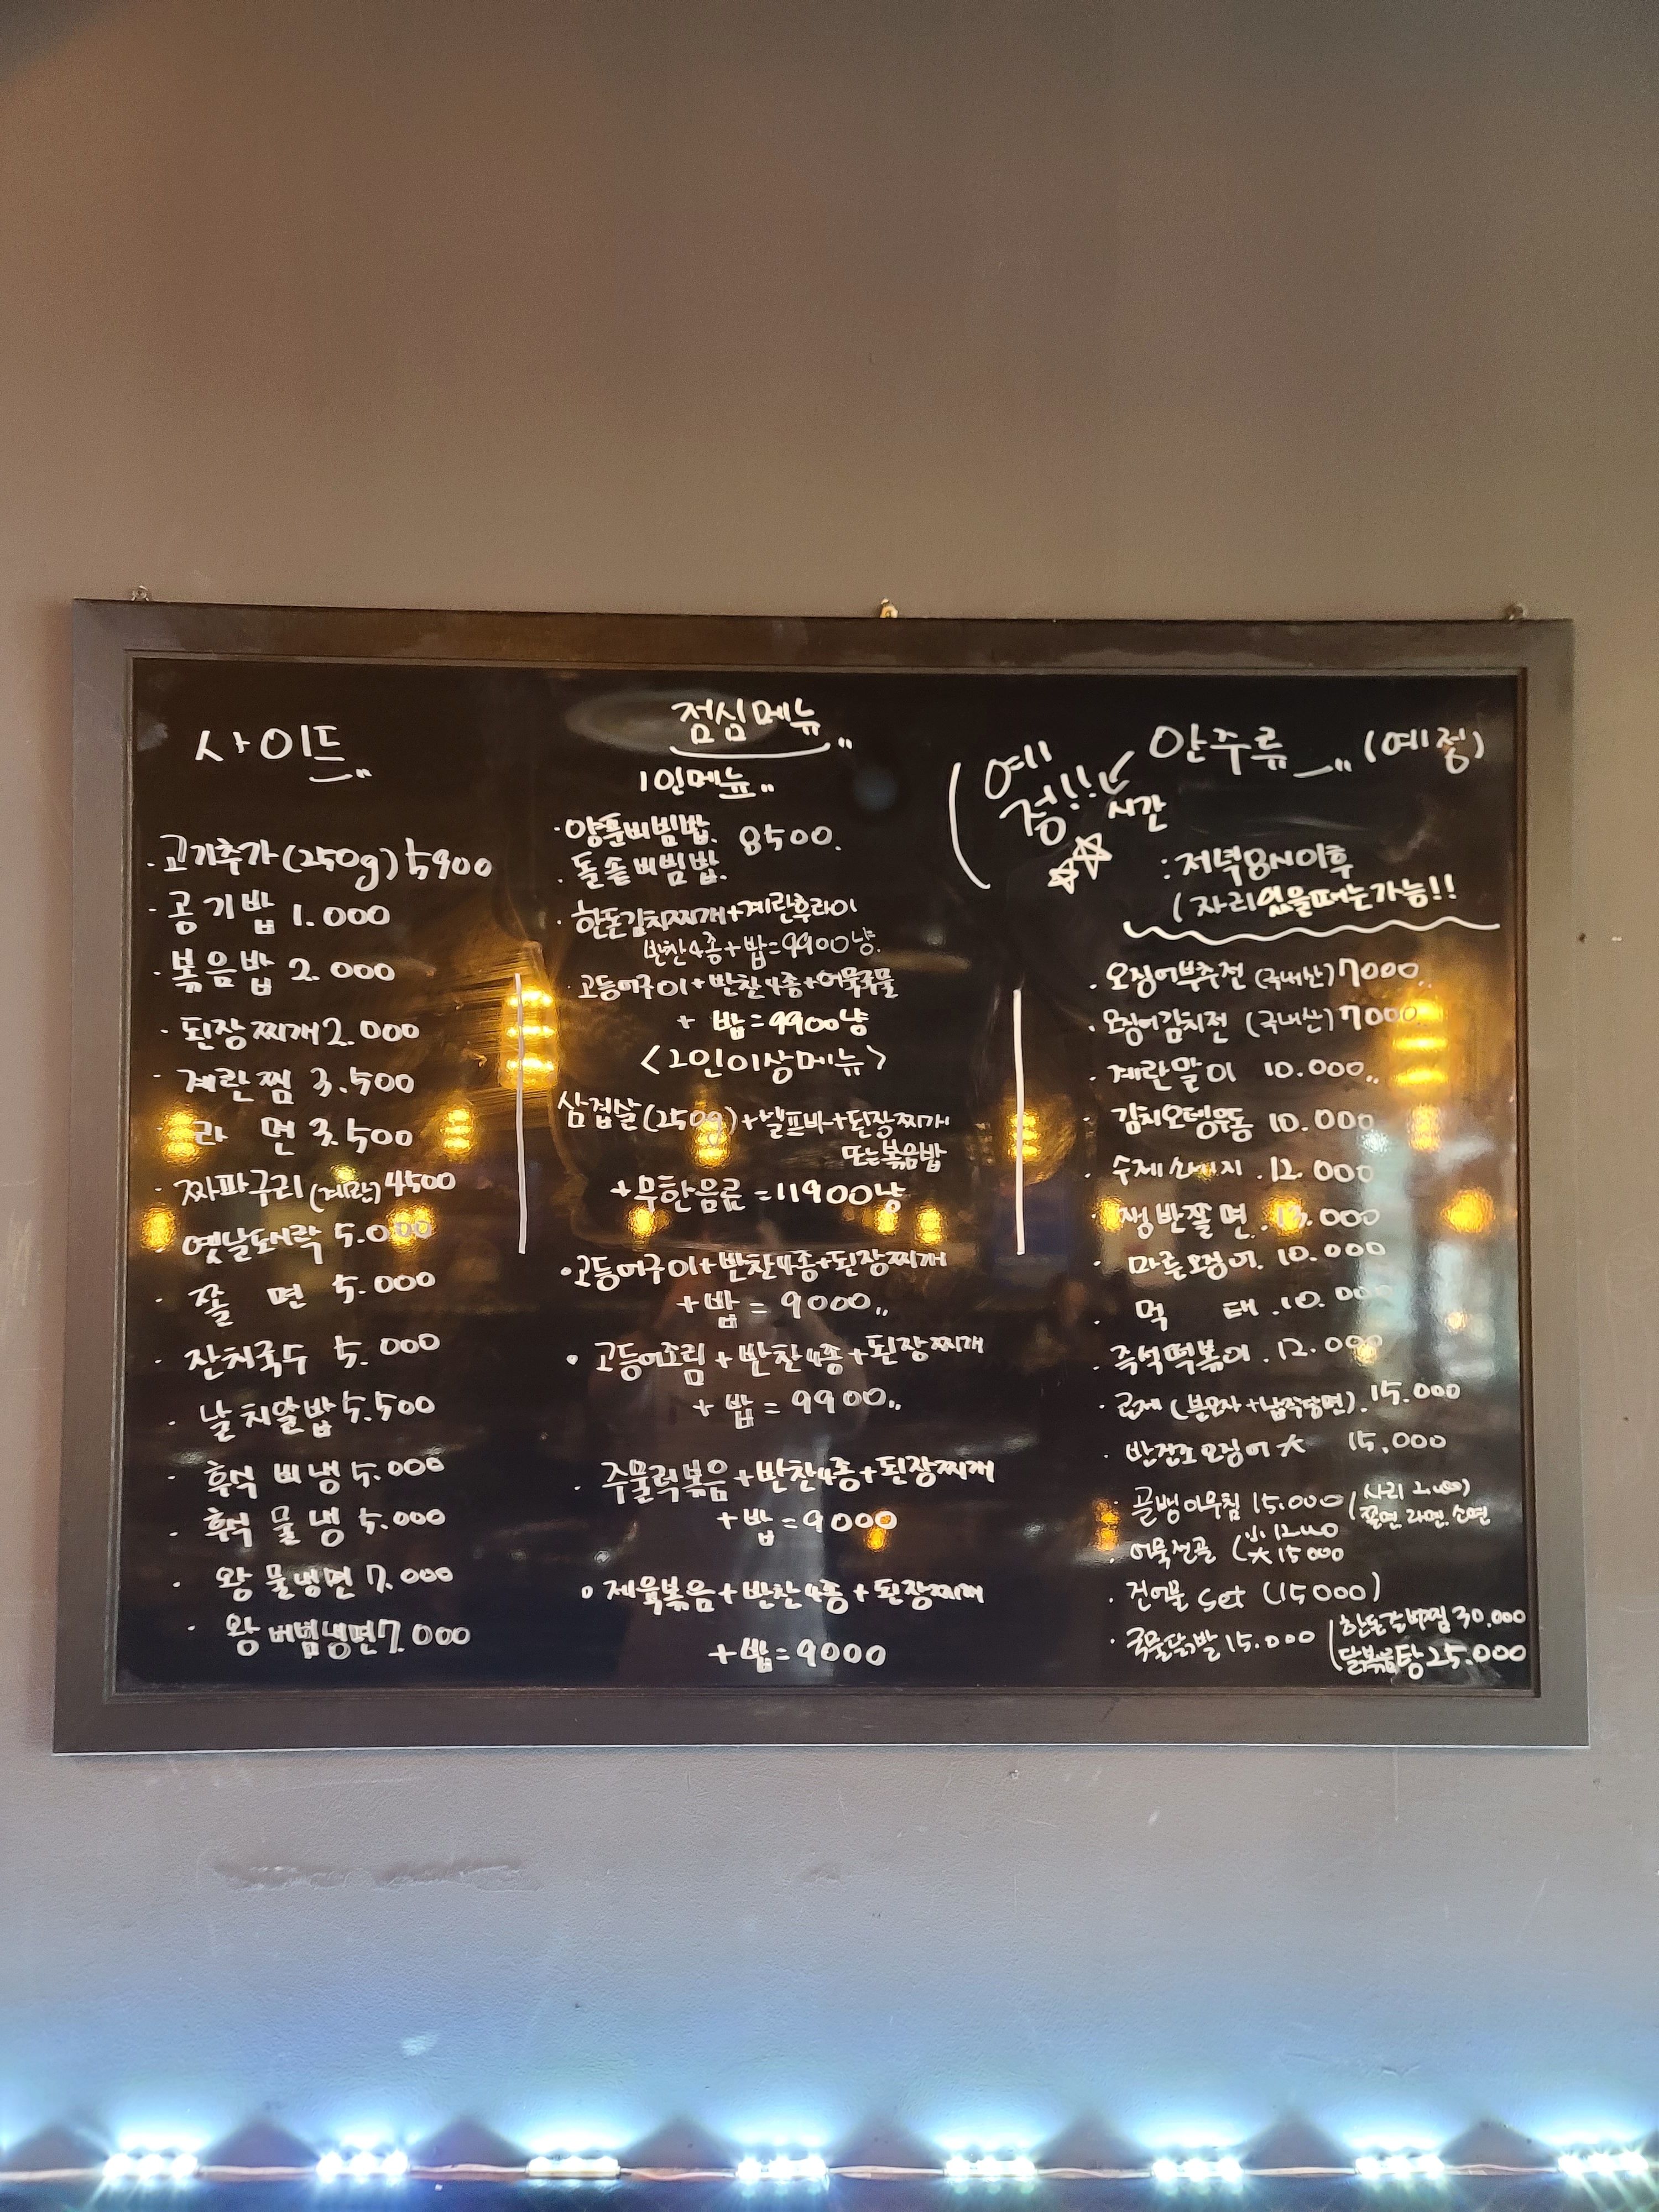 사이드
· 고기추가(250g) 5900
· 공기밥 1.000
· 볶음밥 2.000
· 된장찌개 2.000
· 계란찜 3.500
· 라 면 3.500
· 짜파구리(계란) 4500
· 옛날도시락 5.000
· 쫄 면 5.000
· 잔치국수 5.000
· 날치알밥 5.500
· 후식 비냉 5.000
· 후식 물냉 5.000
· 왕 물냉면 7.000
· 왕 비빔냉면 7.000
점심메뉴
1인메뉴
· 양푼비빔밥.
· 돌솥비빔밥. 8500.
· 한돈김치찌개+계란후라이
반찬4종+밥=9900냥.
· 고등어구이+반찬4종+어묵국물
+ 밥=9900냥
<2인이상메뉴>
삼겹살(250g)+셀프바+된장찌개
또는볶음밥
+무한음료=11900냥
· 고등어구이+반찬4종+된장찌개
+밥=9000
· 고등어조림+반찬4종+된장찌개
+ 밥=9900
· 주물럭볶음+반찬4종+된장찌개
+밥=9000
· 제육볶음+반찬4종+된장찌개
+밥=9000
안주류 (예정)
(예정!! 시간
:저녁8시이후
(자리있을때는가능!!
· 오징어부추전 (국내산) 7000
· 오징어김치전 (국내산) 7000
· 계란말이 10.000
· 김치오뎅우동 10.000
· 수제 12.000
· 쟁반쫄면. 13.000
· 마른오징어. 10.000
· 먹 태. 10.000
· 즉석떡볶이. 12.000
· (분모자+납작당면). 15.000
· 반건조오징어 大 15.000
· 골뱅이무침 15.000 (사리 2.000)
쫄면, 라면, 소면
· 어묵전골 (小 12000
大 15000
· 건어물 set (15000)
· 국물닭발 15.000
한돈갈비찜 30.000
닭볶음탕 25.000